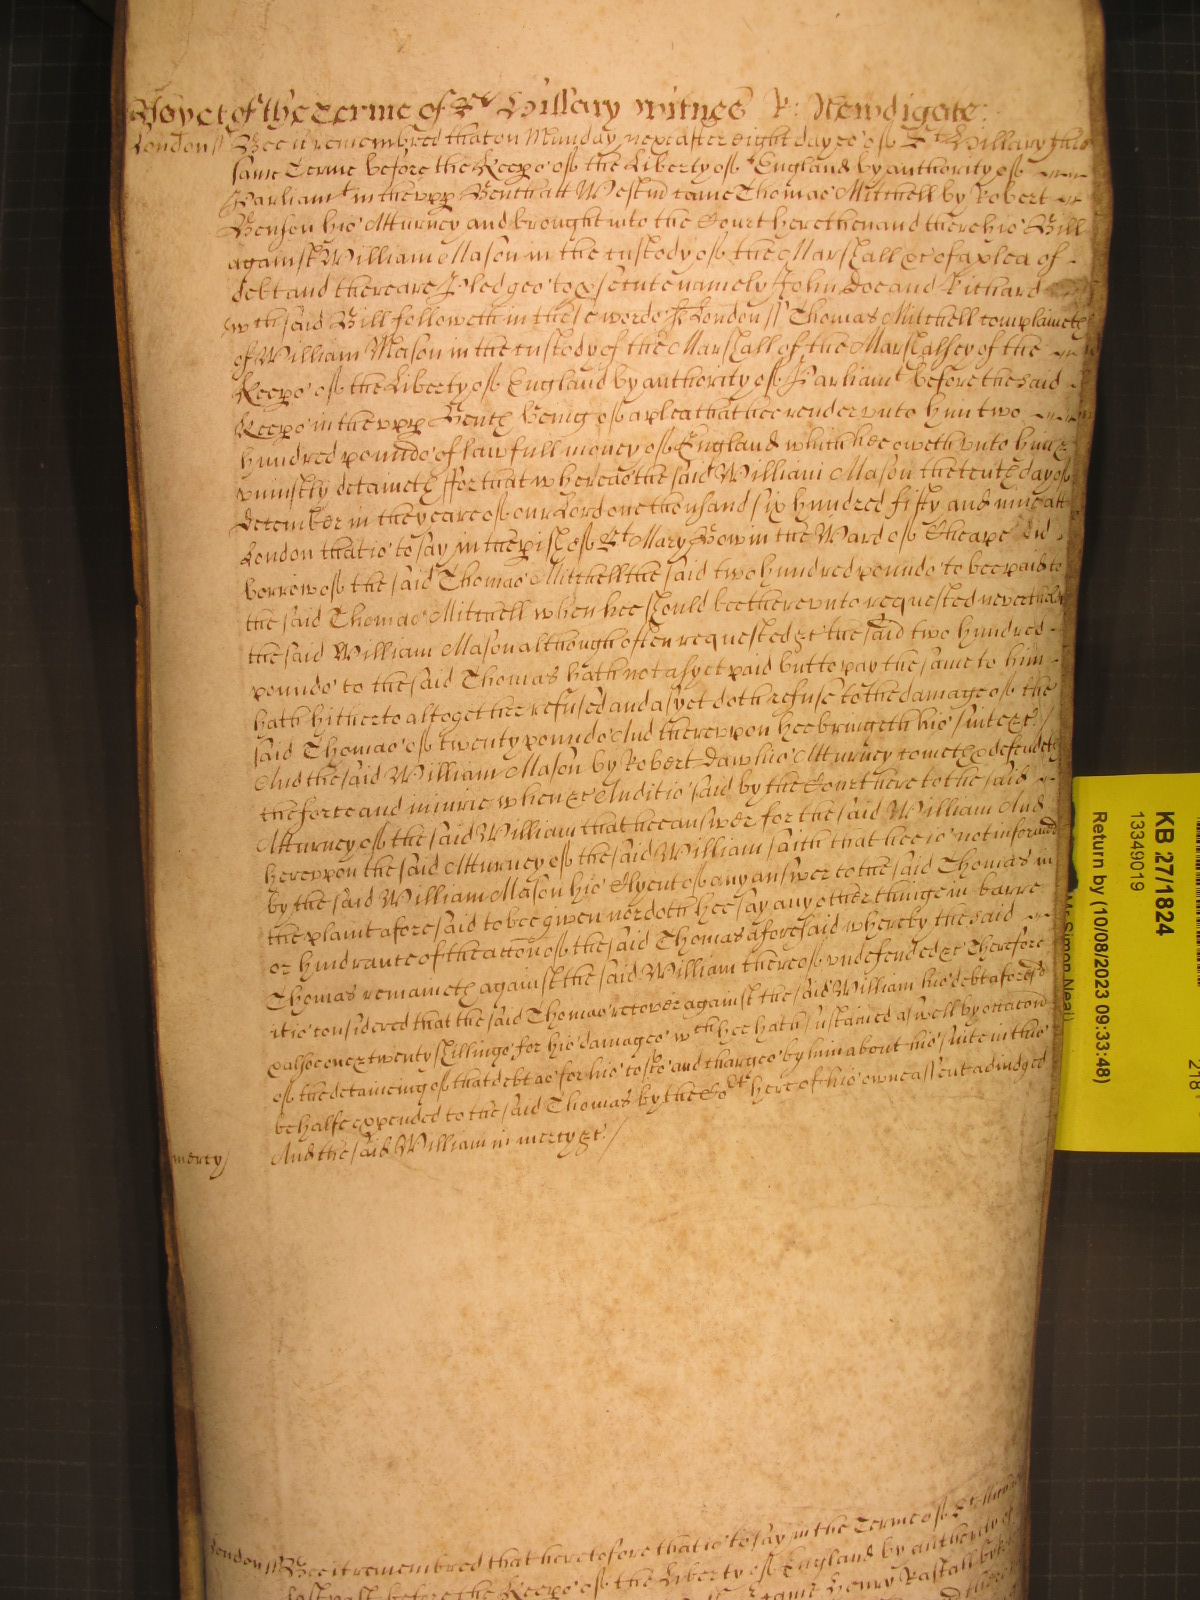 As yet of the Terme of St Hillary witnes R: Newdigate
London // Bee it remembred that on Munday next after eight dayes of St Hillary this
same Terme before the Keeps of the Liberty of England by authority of
Parliamt in the vpp Bench att Westm came Thomas Mitchell by Robert
Benson his Atturney and brought into the Court here then and there his Bill
against William Mason in the custody of the Marshall &c of a plea of
debt and there are Pledges to psecute namely John Doe and Richard
wch said Bill followeth in these words ss London ss Thomas Mitchell complaineth
of William Mason in the custody of the Marshall of the Marshalsey of the
Keeps of the Liberty of England by authority of Parliamt before the said
Keeps in the vpp Bench being of a plea that hee render vnto him two
hundred pounds of lawfull money of England which hee oweth vnto him &
vniustly detaineth ffor that whereas the said William Mason the tenth day of
December in the yeare of our Lord one thousand six hundred fifty and nine att
London that is to say in the pish of St Mary Bow in the Ward of Cheape did
borrow of the said Thomas Mitchell the said two hundred pounds to bee paid to
the said Thomas Mitchell when hee should bee therevnto requested neverthelesse
the said William Mason although often requested &c the said two hundred
pounds to the said Thomas hath not as yet paid but to pay the same to him
hath hitherto altogether refused and as yet doth refuse to the damage of the
said Thomas of twenty pounds And therevpon hee bringeth his suite &c /
And the said William Mason by Robert Daw his Atturney cometh & defendeth
the force and iniurie when &c And it is said by the Court here to the said
Atturney of the said William that hee answer for the said William And
herevpon the said Atturney of the said William saith that hee is not informed
by the said William Mason his Clyent of any answer to the said Thomas in
the plaint aforesaid to bee given nor doth hee say any other thinge in barre
or hindrance of the accon of the said Thomas aforesaid whereby the said
Thomas remaineth against the said William thereof vndefended &c Therefore
it is considered that the said Thomas recover against the said William his debt aforesd
& alsoe twenty shillings for his damages wch hee hath sustained aswell by occacon
of the detaineing of that debt as for his costs and charges by him about his suite in this
behalfe expended to the said Thomas by the Cort here of his owne assent adiudged
And the said William in mercy &c /
mercy /
London // Bee it remembred that heretofore that is to say in the Terme of St
last past before the Keeps of the Liberty of England by authority of
came Henry Rastall by